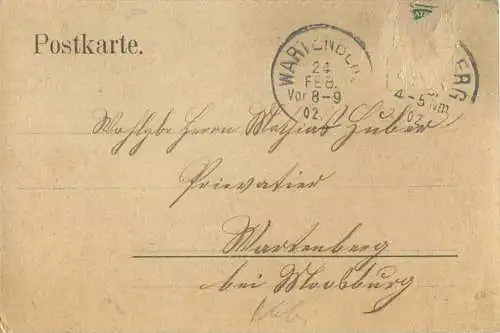 Postkarte.
WARTENBE
24
FEB.
Vor 8-9
02.
BERG
4-5 Nm.
02.
Wohlgb Herrn Mathias Huber
Prievatier
Wartenberg
bei Moosburg